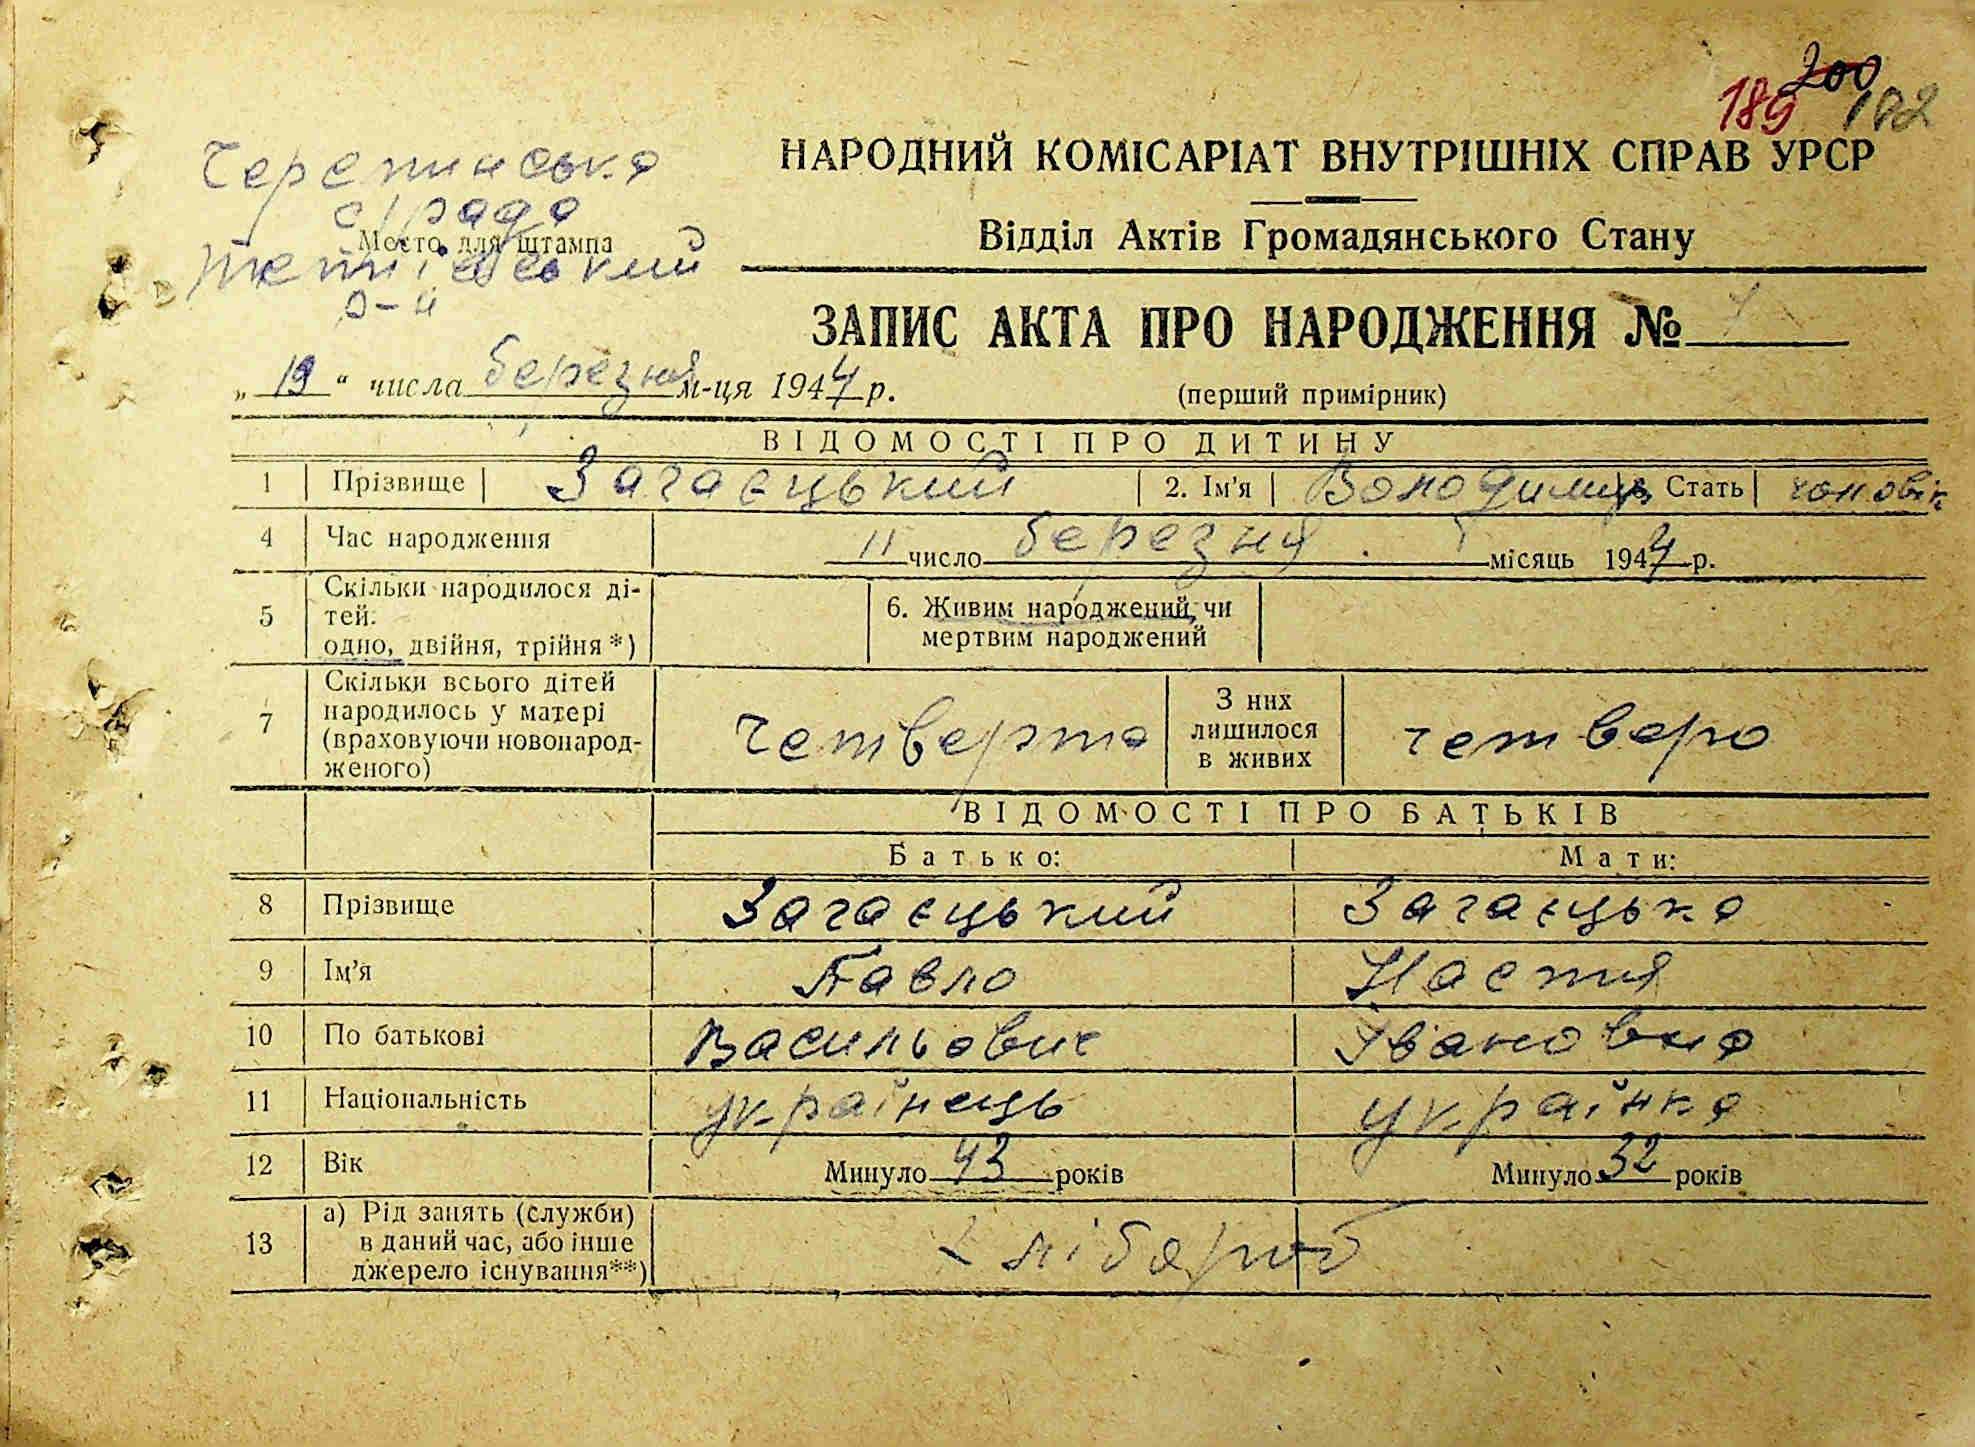 200
189 182
Черепинська
с/рада
Место для штампа
Тетіївський
р-н
НАРОДНИЙ КОМІСАРІАТ ВНУТРІШНІХ СПРАВ УРСР
Відділ Актів Громадянського Стану
ЗАПИС АКТА ПРО НАРОДЖЕННЯ № 7
„ 19 “ числа березня м-ця 1944 р.
(перший примірник)
ВІДОМОСТІ ПРО ДИТИНУ
1 Прізвище Загаєцький 2. Ім'я Володимир Стать чоловік
4 Час народження 11 число березня місяць 1944 р.
5 Скільки народилося ді-
тей:
одно, двійня, трійня *)
6. Живим народжений, чи
мертвим народжений
7 Скільки всього дітей
народилось у матері
(враховуючи новонарод-
женого)
четверта
З них
лишилося
в живих
четверо
ВІДОМОСТІ ПРО БАТЬКІВ
Батько: Мати:
8 Прізвище Загаєцький Загаєцька
9 Ім'я Павло Настя
10 По батькові Васильович Івановна
11 Національність українець українка
12 Вік Минуло 43 років Минуло 32 років
13 а) Рід занять (служби)
в даний час, або інше
джерело існування**)
хлібороб